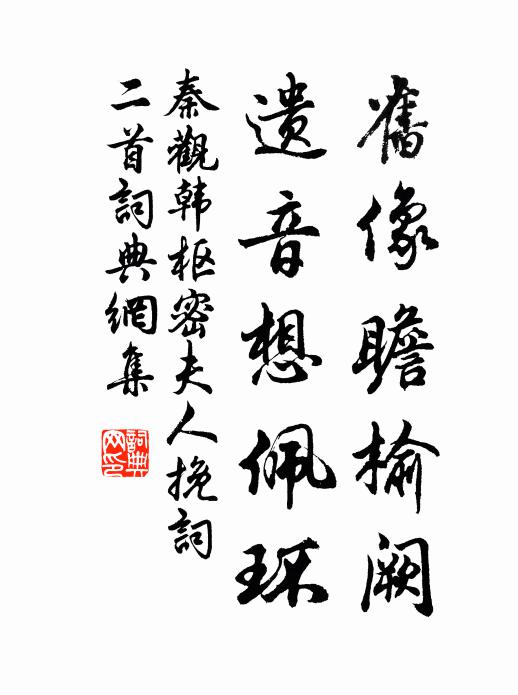 舊像瞻榆阙
遗音想佩环
秦觀韩枢密夫人挽詞
二首詞典網集
詞典网印